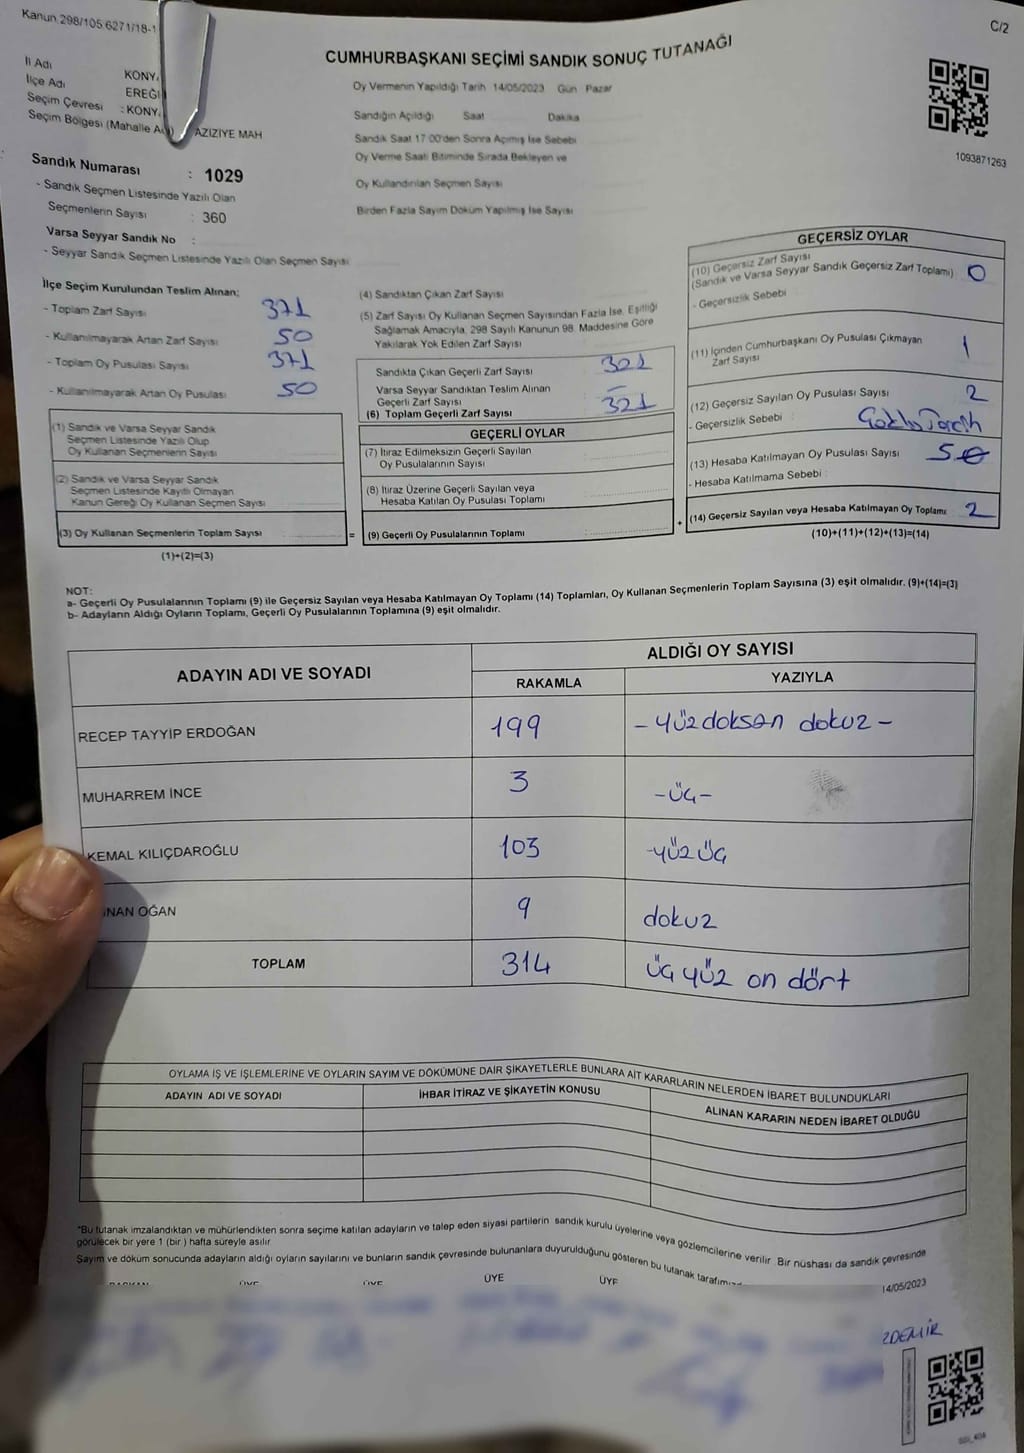 Kanun 298/105 6271/18-1
C/2
CUMHURBAŞKANI SEÇİMİ SANDIK SONUÇ TUTANAĞI
İl Adı KONY
İlçe Adı EREĞ
Seçim Çevresi : KONY
Seçim Bölgesi (Mahalle A AZIZIYE MAH
Oy Vermenin Yapıldığı Tarih 14/05/2023 Gün Pazar
Sandığın Açıldığı Saat Dakika
Sandık Saat 17:00'den Sonra Açımış İse Sebebi
Oy Verme Saati Bitiminde Sırada Bekleyen ve
Oy Kullandırılan Seçmen Sayısı
Birden Fazla Sayım Döküm Yapılmış İse Sayısı
1093871263
Sandık Numarası : 1029
- Sandık Seçmen Listesinde Yazılı Olan
Seçmenlerin Sayısı : 360
Varsa Seyyar Sandık No :
- Seyyar Sandık Seçmen Listesinde Yazılı Olan Seçmen Sayısı
İlçe Seçim Kurulundan Teslim Alınan:
- Toplam Zarf Sayısı 371
- Kullanılmayarak Artan Zarf Sayısı 50
- Toplam Oy Pusulası Sayısı 371
- Kullanılmayarak Artan Oy Pusulası 50
(1) Sandık ve Varsa Seyyar Sandık
Seçmen Listesinde Yazılı Olup
Oy Kullanan Seçmenlerin Sayısı
(2) Sandık ve Varsa Seyyar Sandık
Seçmen Listesinde Kayıtlı Olmayan
Kanun Gereği Oy Kullanan Seçmen Sayısı
(3) Oy Kullanan Seçmenlerin Toplam Sayısı =
(1)+(2)=(3)
(4) Sandıktan Çıkan Zarf Sayısı
(5) Zarf Sayısı Oy Kullanan Seçmen Sayısından Fazla İse, Eşitliği
Sağlamak Amacıyla, 298 Sayılı Kanunun 98. Maddesine Göre
Yakılarak Yok Edilen Zarf Sayısı
Sandıkta Çıkan Geçerli Zarf Sayısı 321
Varsa Seyyar Sandıktan Teslim Alınan
Geçerli Zarf Sayısı –
(6) Toplam Geçerli Zarf Sayısı 321
GEÇERLİ OYLAR
(7) İtiraz Edilmeksizin Geçerli Sayılan
Oy Pusulalarının Sayısı
(8) İtiraz Üzerine Geçerli Sayılan veya
Hesaba Katılan Oy Pusulası Toplamı
(9) Geçerli Oy Pusulalarının Toplamı : +
GEÇERSİZ OYLAR
(10) Geçersiz Zarf Sayısı
(Sandık ve Varsa Seyyar Sandık Geçersiz Zarf Toplamı) 0
- Geçersizlik Sebebi
(11) İçinden Cumhurbaşkanı Oy Pusulası Çıkmayan
Zarf Sayısı 1
(12) Geçersiz Sayılan Oy Pusulası Sayısı 2
- Geçersizlik Sebebi :
(13) Hesaba Katılmayan Oy Pusulası Sayısı
- Hesaba Katılmama Sebebi :
(14) Geçersiz Sayılan veya Hesaba Katılmayan Oy Toplamı 2
(10)+(11)+(12)+(13)=(14)
NOT:
a- Geçerli Oy Pusulalarının Toplamı (9) ile Geçersiz Sayılan veya Hesaba Katılmayan Oy Toplamı (14) Toplamları, Oy Kullanan Seçmenlerin Toplam Sayısına (3) eşit olmalıdır. (9)+(14)=(3)
b- Adayların Aldığı Oyların Toplamı, Geçerli Oy Pusulalarının Toplamına (9) eşit olmalıdır.
ADAYIN ADI VE SOYADI
ALDIĞI OY SAYISI
RAKAMLA YAZIYLA
RECEP TAYYİP ERDOĞAN 199 - yüzdoksan dokuz -
MUHARREM İNCE 3 - üç -
KEMAL KILIÇDAROĞLU 103 -yüz üç
NAN OĞAN 9 dokuz
TOPLAM 314 üç yüz on dört
OYLAMA İŞ VE İŞLEMLERİNE VE OYLARIN SAYIM VE DÖKÜMÜNE DAİR ŞİKAYETLERLE BUNLARA AİT KARARLARIN NELERDEN İBARET BULUNDUKLARI
ADAYIN ADI VE SOYADI İHBAR İTİRAZ VE ŞİKAYETİN KONUSU ALINAN KARARIN NEDEN İBARET OLDUĞU
*Bu tutanak imzalandıktan ve mühürlendikten sonra seçime katılan adayların ve talep eden siyasi partilerin sandık kurulu üyelerine veya gözlemcilerine verilir. Bir nüshası da sandık çevresinde
görülecek bir yere 1 (bir) hafta süreyle asılır
Sayım ve döküm sonucunda adayların aldığı oyların sayılarını ve bunların sandık çevresinde bulunanlara duyurulduğunu gösteren bu tutanak tarafım
14/05/2023
BAŞKAN ÜYE ÜYE ÜYE ÜYE
ZDEMİR